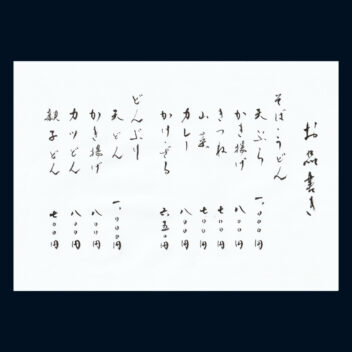 お品書き
そば・うどん
天ぷら 一、〇〇〇円
かき揚げ 八〇〇円
きつね 七〇〇円
山菜 七〇〇円
カレー 八〇〇円
かけ・ざる 六五〇円
どんぶり
天どん 一、〇〇〇円
かき揚げ 八〇〇円
カツどん 八〇〇円
親子どん 七〇〇円